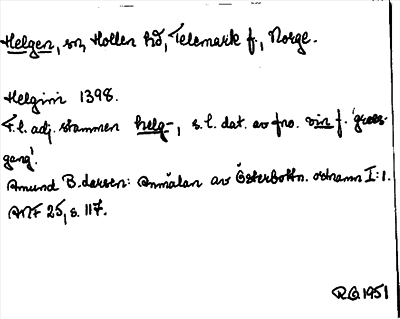 Helgen, sn, Hollen hd, Telemark f., Norge.
Helgini 1398.
F.l. adj. stammen helg-, s.l. dat. av fno. vin f. 'gräs-
gang'.
Amund B. Larsen: Anmälan av Österbottn. ortnamn I:1.
ANF 25, s. 117.
RQ 1951